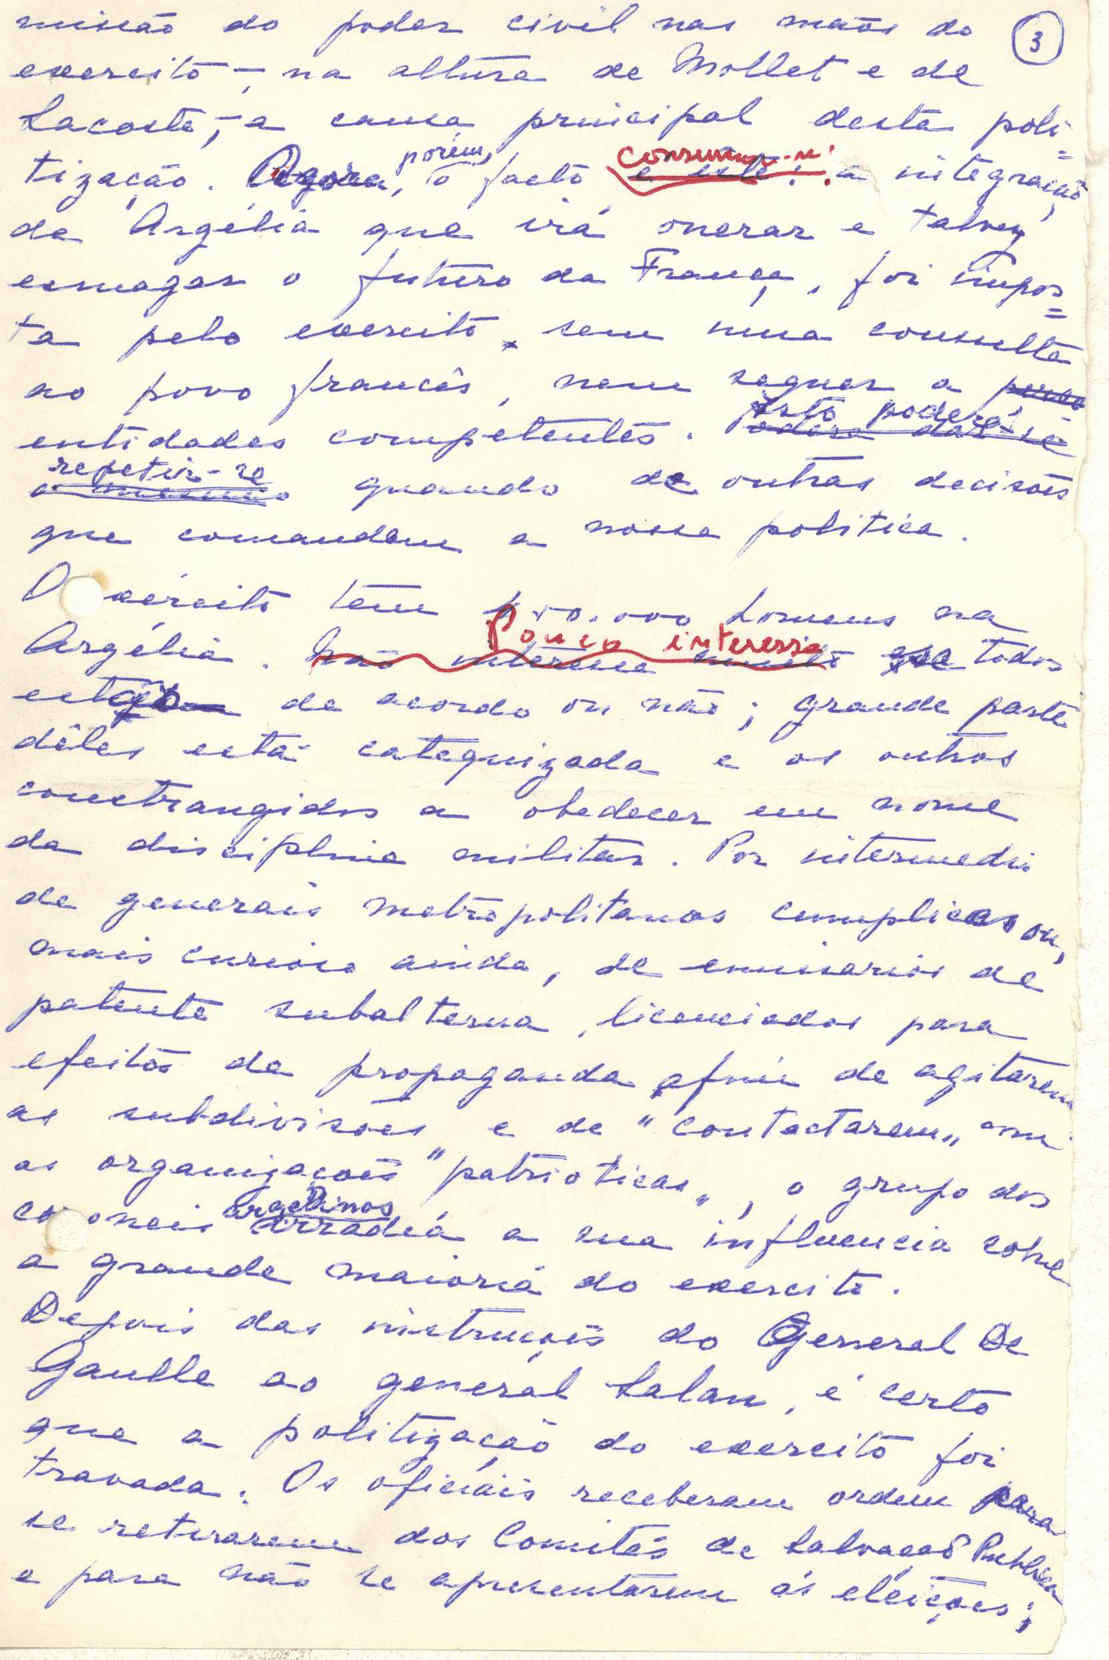 missão do poder civil nas mãos do 3
exercito -, na altura de Mollet e de
Lacoste, - a causa principal desta poli=
tização. Agora, porém, o facto consumou-se: a integração
da Argélia que irá onerar e talvez
esmagar o futuro da França, foi impos=
ta pelo exercito, sem uma consulta
ao povo francês, nem sequer a
entidades competentes. Isto poderá
repetir-se quando de outras decisões
que comandam a nossa politica.
O exército tem 500.000 homens na
Argélia. Pouco interessa que todos
estejam de acordo ou não; grande parte
dêles está catequizada e os outros
constrangidos a obedecer em nome
da disciplina militar. Por intermedio
de generais metropolitanos cumplices ou,
mais curioso ainda, de emissarios de
patente subalterna, licenciados para
efeitos de propaganda afim de agitarem
as subdivisões e de "contactarem" com
as organizações "patrioticas", o grupo dos
coroneis argelinos irradia a sua influencia sobre
a grande maioria do exercito.
Depois das instruções do General De
Gaulle ao general Salan, é certo
que a politização do exercito foi
travada. Os oficiais receberam ordem para
se retirarem dos Comités de Salvação Publica
e para não se apresentarem ás eleições;